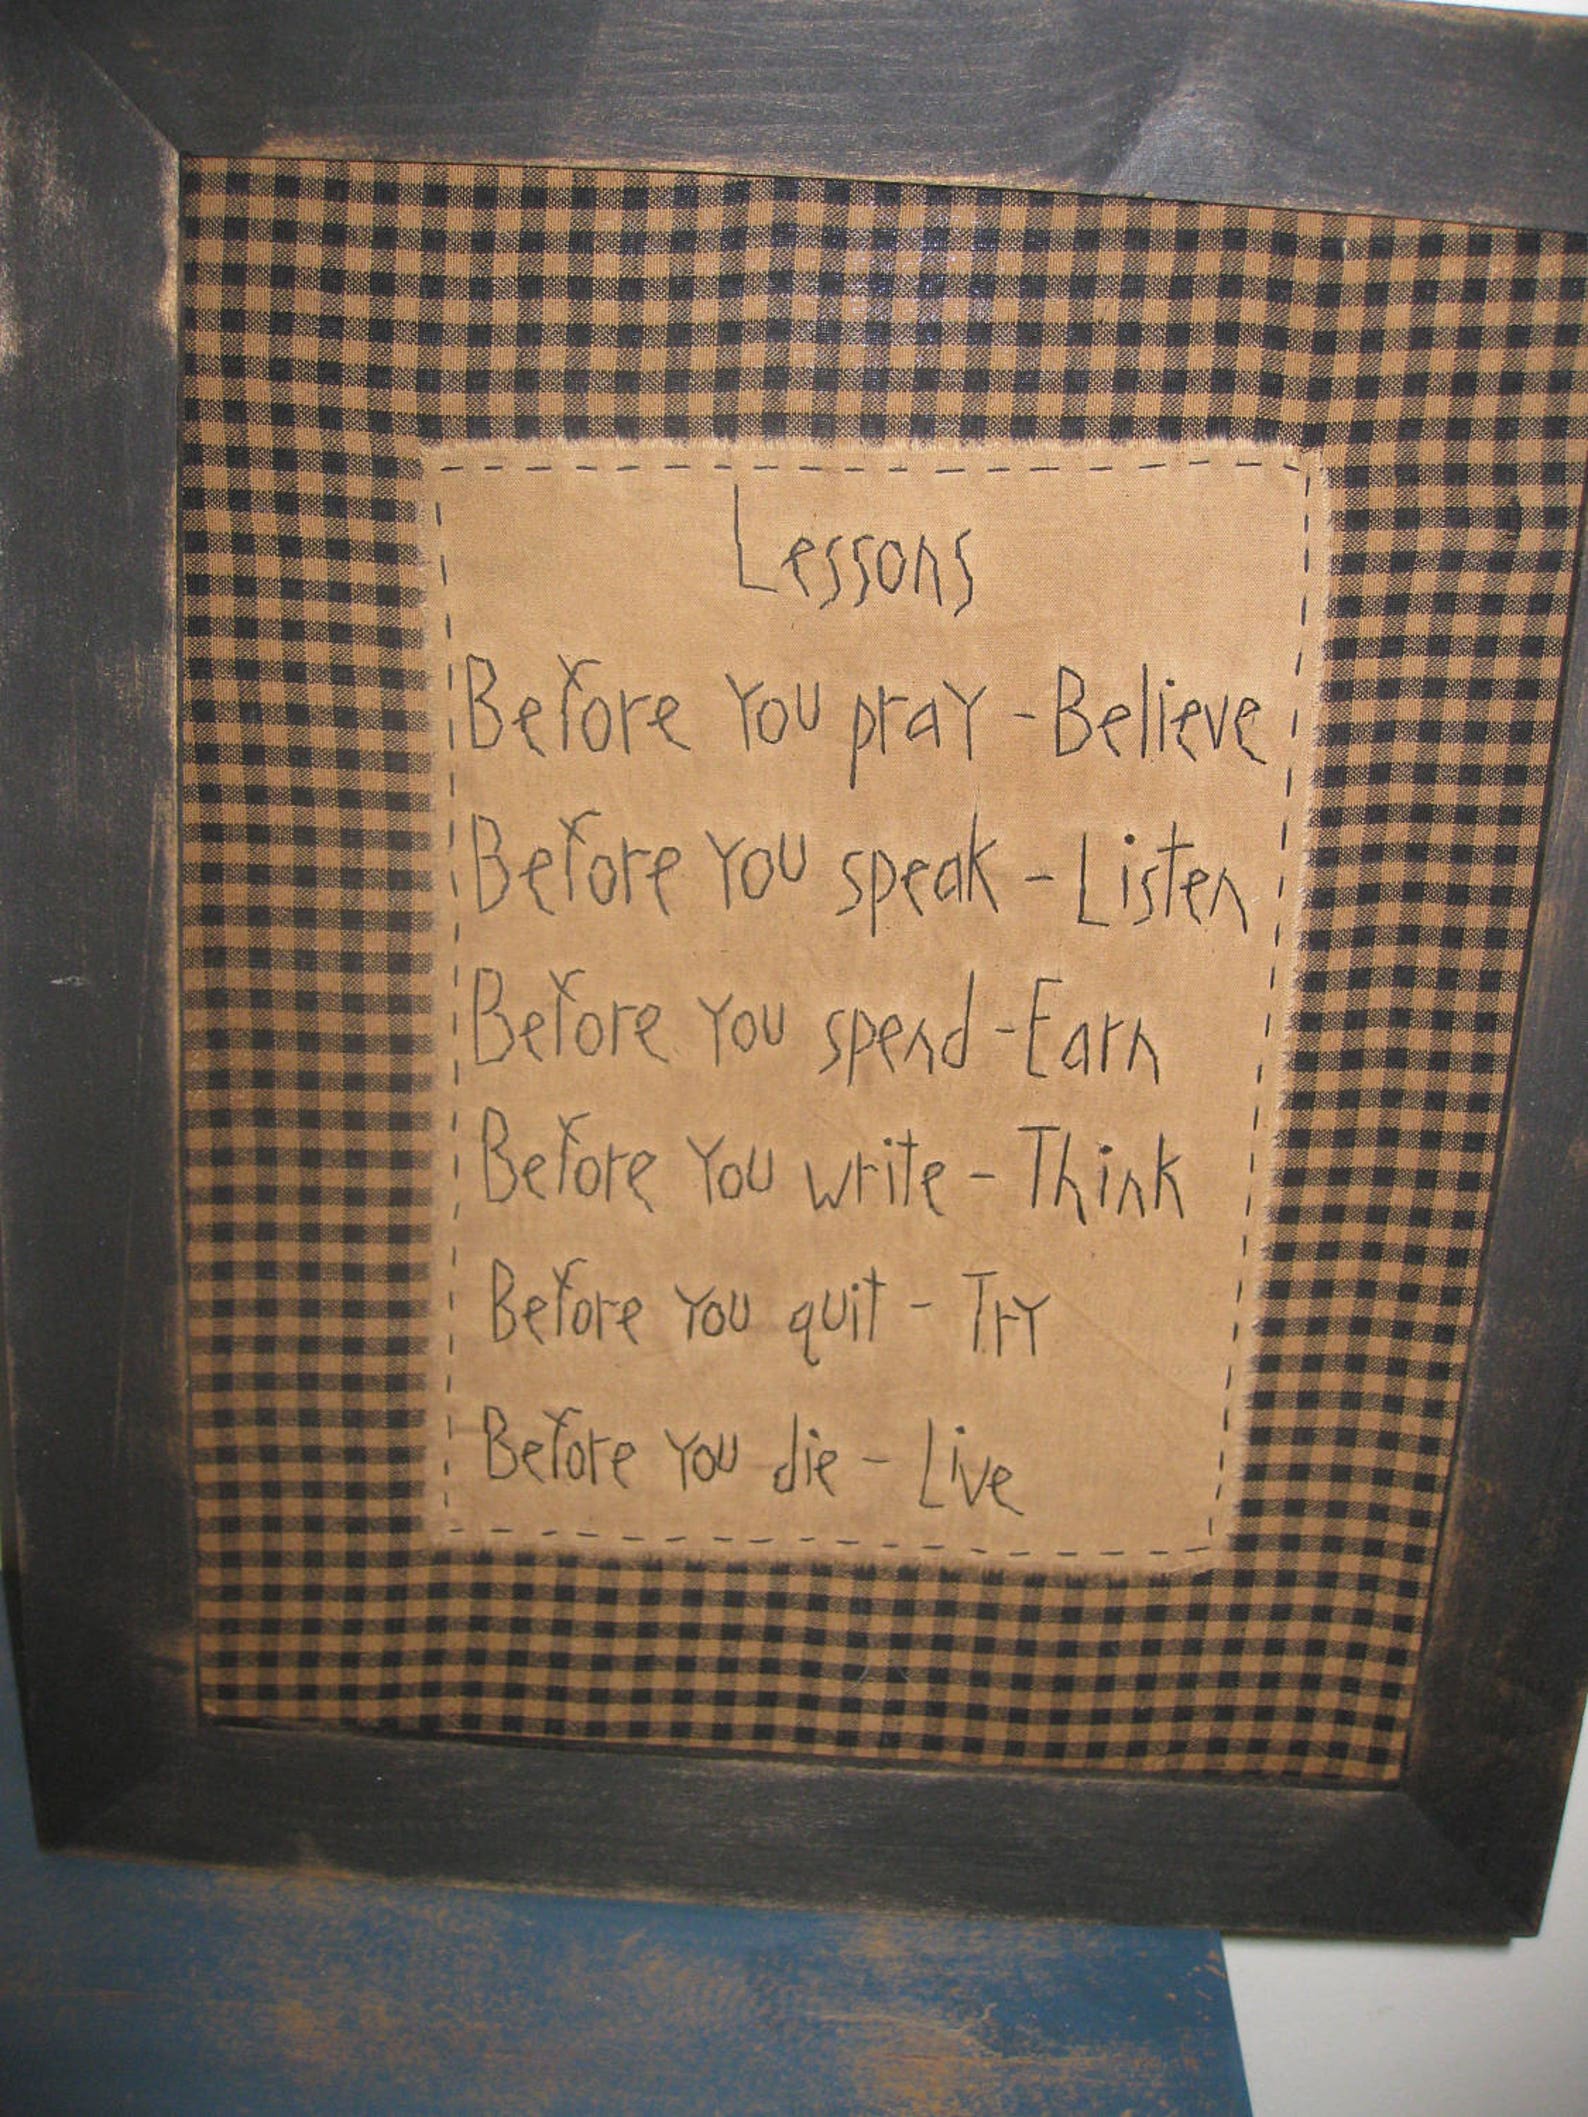 Lessons
Before You pray - Believe
Before You speak - Listen
Before You spend - Earn
Before You write - Think
Before You quit - Try
Before You die - Live